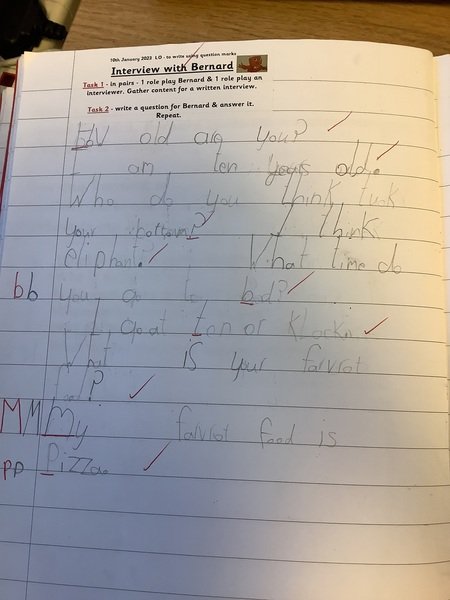 10th January 2023 LO - to write using question marks
Interview with Bernard
Task 1 - in pairs - 1 role play Bernard & 1 role play an
interviewer. Gather content for a written interview.
Task 2 - write a question for Bernard & answer it.
Repeat.
How old are you?
I am ten years old.
Who do you think tuck
your hottower? I think
eliphant. What time do
bb you go to bed?
I go at ten or klockn
What is your favrot
food?
MMMy favrot food is
pp Pizza.